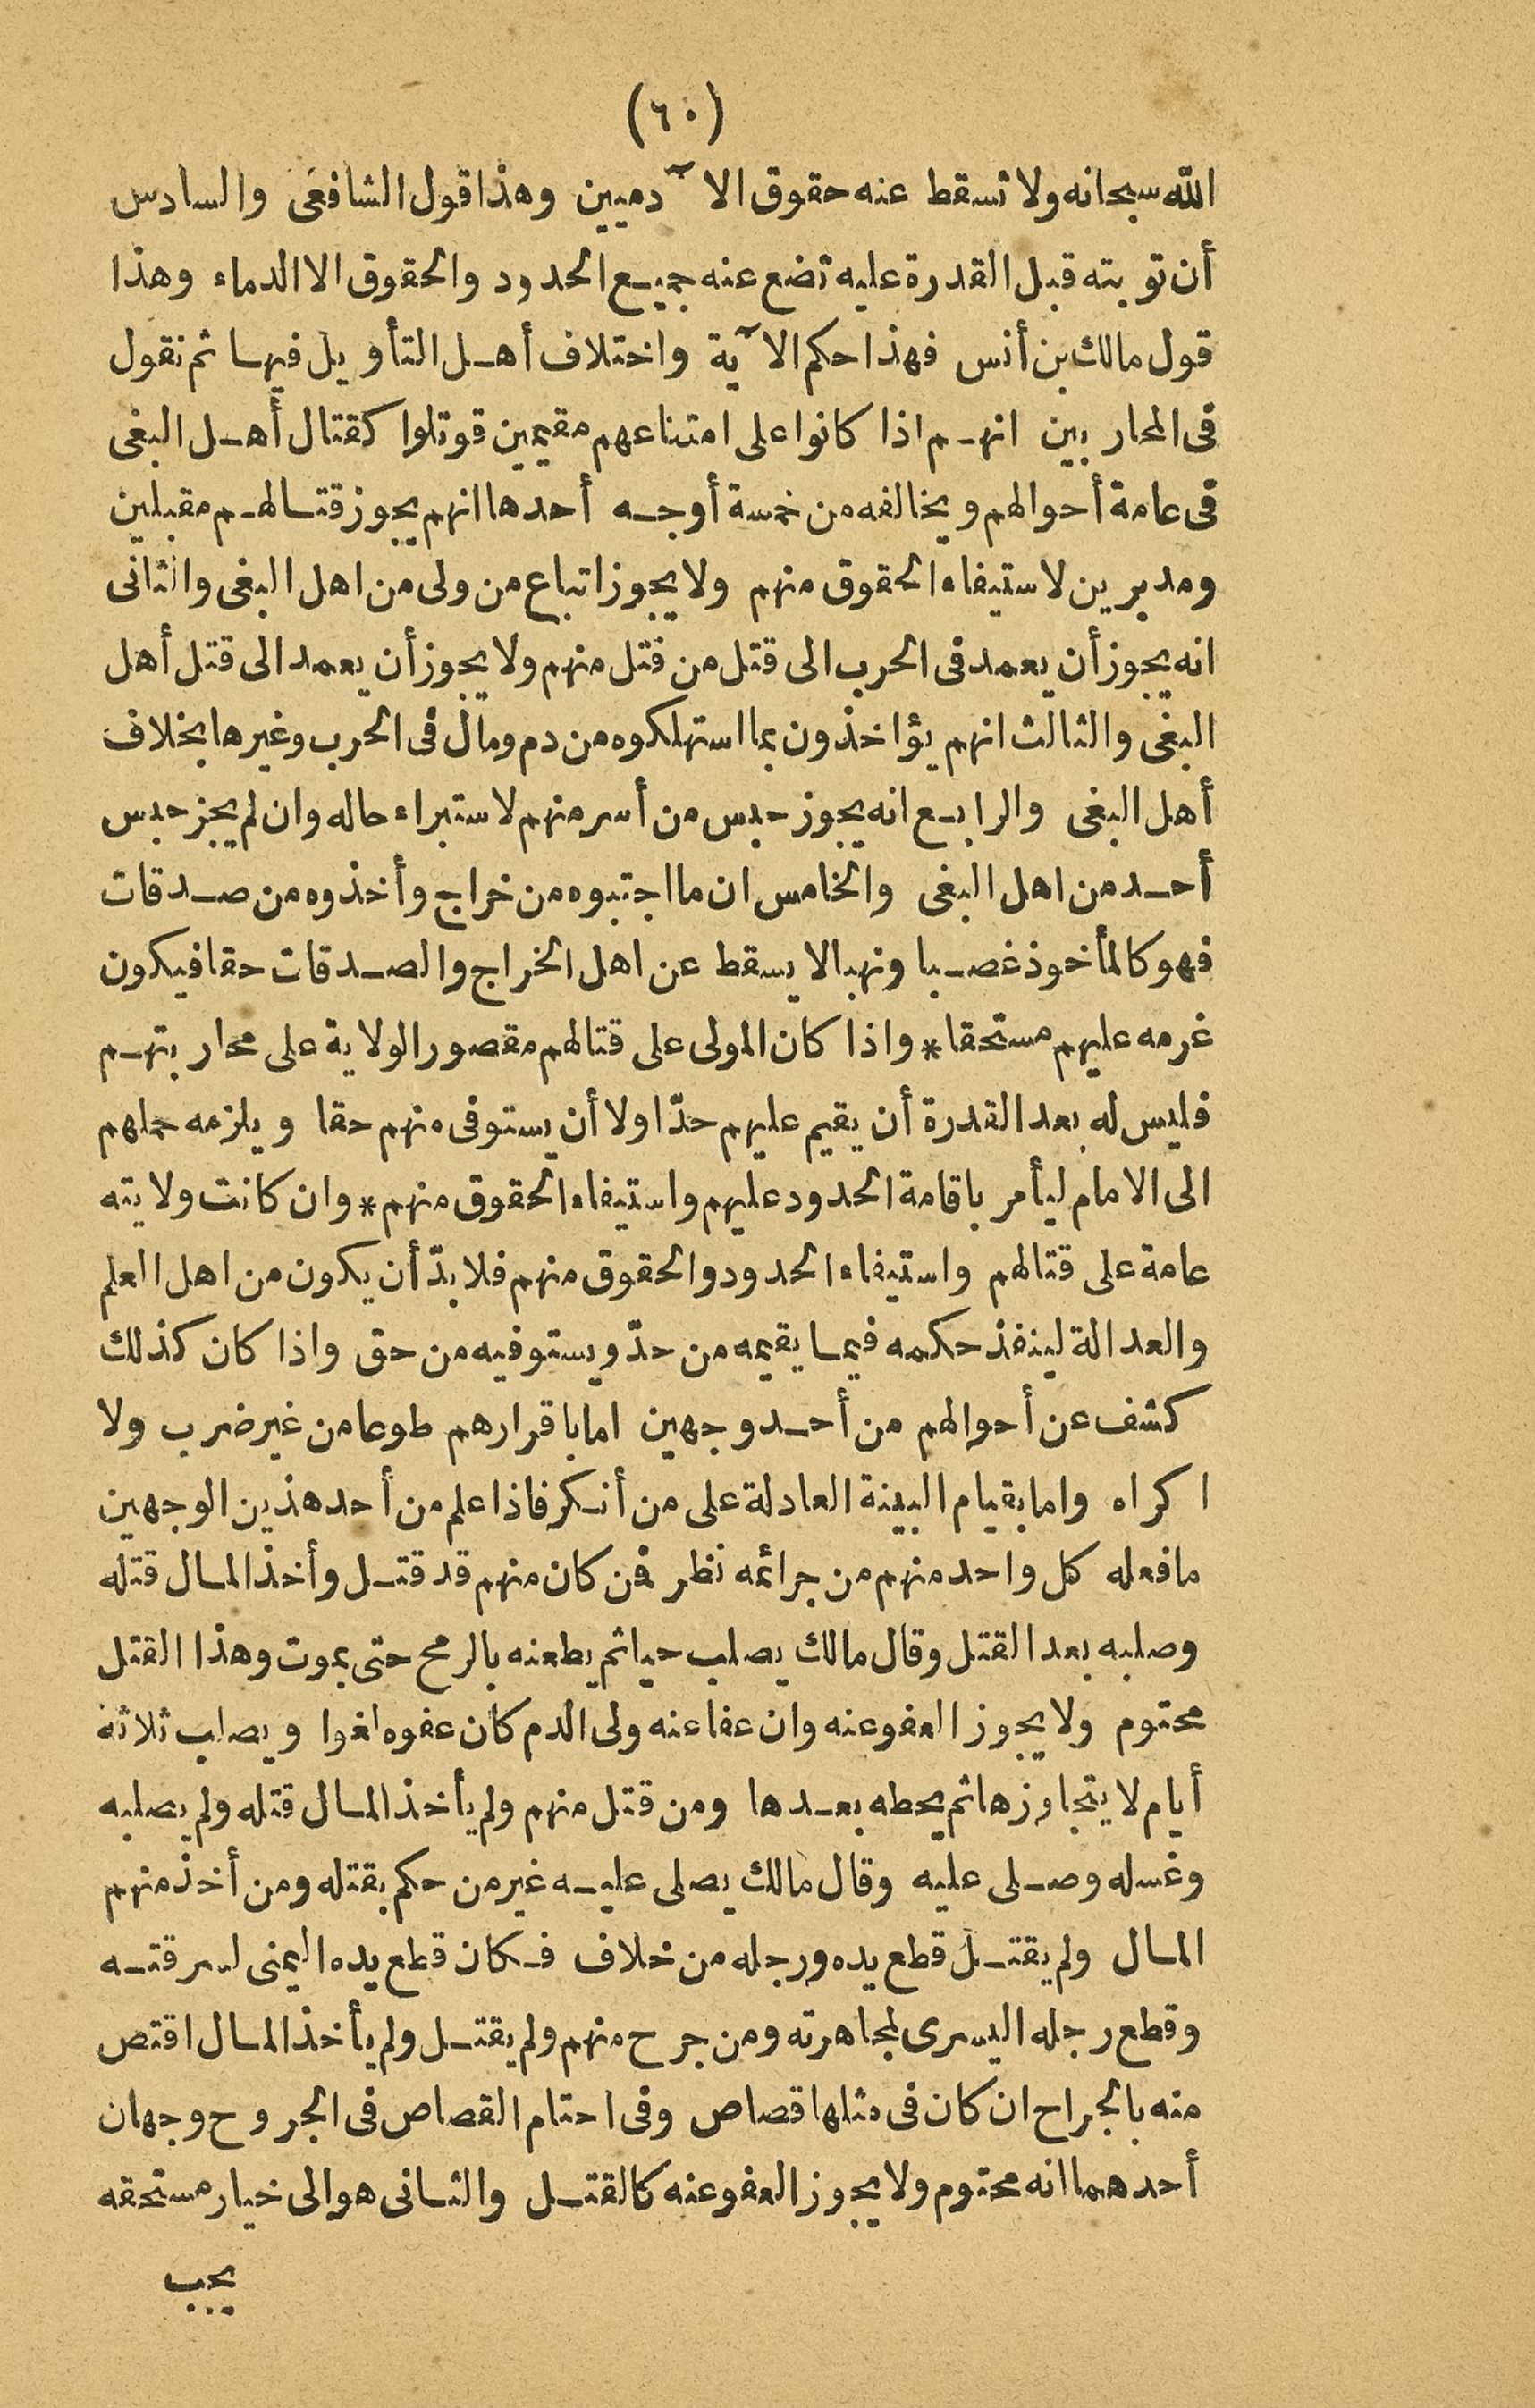 (٦٠)
الله سبحانه ولا تسقط عنه حقوق الآدميين وهذا قول الشافعى والسادس
أن توبته قبل القدرة عليه تضع عنه جميع الحدود والحقوق الا الدماء وهذا
قول مالك بن أنس فهذا حكم الآية واختلاف أهل التأويل فيها ثم نقول
فى المحاربين انهم اذا كانوا على امتناعهم مقيمين قوتلوا كقتال أهل البغى
فى عامة أحوالهم ويخالفه من خمسة أوجه أحدها انهم يجوز قتالهم مقبلين
ومدبرين لاستيفاء الحقوق منهم ولا يجوز اتباع من ولى من اهل البغى والثانى
انه يجوز أن يعمد فى الحرب الى قتل من قتل منهم ولا يجوز أن يعمد الى قتل أهل
البغى والثالث انهم يؤاخذون بما استهلكوه من دم ومال فى الحرب وغيرها بخلاف
أهل البغى والرابع انه يجوز حبس من أسر منهم لاستبراء حاله وان لم يجز حبس
أحد من اهل البغى والخامس ان ما اجتبوه من خراج وأخذوه من صدقات
فهو كالمأخوذ غصبا ونهبا لا يسقط عن اهل الخراج والصدقات حقا فيكون
غرمه عليهم مستحقا* واذا كان المولى على قتالهم مقصور الولاية على محاربتهم
فليس له بعد القدرة أن يقيم عليهم حدّا ولا أن يستوفى منهم حقا ويلزمه حملهم
الى الامام ليأمر باقامة الحدود عليهم واستيفاء الحقوق منهم* وان كانت ولايته
عامة على قتالهم واستيفاء الحدود والحقوق منهم فلا بدّ أن يكون من اهل العلم
والعدالة لينفذ حكمه فيما يقيمه من حدّ ويستوفيه من حق واذا كان كذلك
كشف عن أحوالهم من أحد وجهين اما باقرارهم طوعا من غير ضرب ولا
اكراه واما بقيام البينة العادلة على من أنكر فاذا علم من أحد هذين الوجهين
ما فعله كل واحد منهم من جرائمه نظر فمن كان منهم قد قتل وأخذ المال قتله
وصلبه بعد القتل وقال مالك يصلب حيا ثم يطعنه بالرمح حتى يموت وهذا القتل
محتوم ولا يجوز العفو عنه وان عفا عنه ولى الدم كان عفوه لغوا ويصلب ثلاثة
أيام لا يتجاوزها ثم يحطه بعدها ومن قتل منهم ولم يأخذ المال قتله ولم يصلبه
وغسله وصلى عليه وقال مالك يصلى عليه غير من حكم بقتله ومن أخذ منهم
المال ولم يقتل قطع يده ورجله من خلاف فكان قطع يده اليمنى لسرقته
وقطع رجله اليسرى لمجاهرته ومن جرح منهم ولم يقتل ولم يأخذ المال اقتص
منه بالجراح ان كان فى مثلها قصاص وفى احتام القصاص فى الجروح وجهان
أحدهما انه محتوم ولا يجوز العفو عنه كالقتل والثانى هو الى خيار مستحقه
يجب